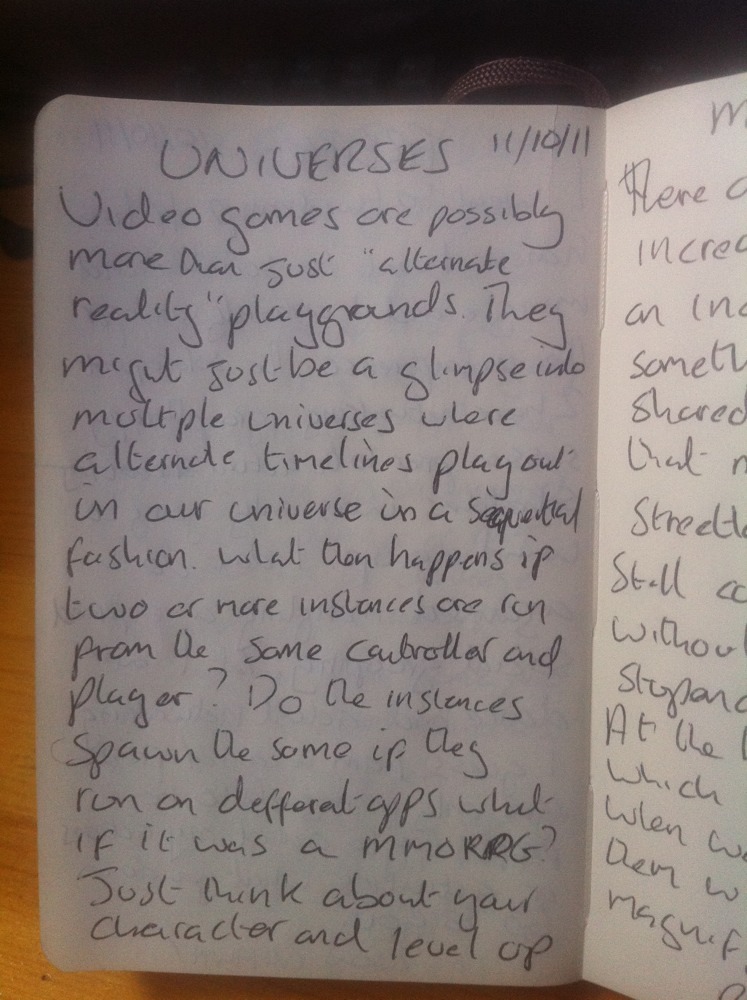 UNIVERSES 11/10/11
Video games are possibly
more than just "alternate
reality" playgrounds. They
might just be a glimpse into
multple universes where
alternate timelines play out
in our universe in a sequential
fashion. What then happens if
two or more instances are run
from the same controller and
player? Do the instances
spawn the same if they
run on defferat apps what
if it was a MMORRG?
Just think about your
character and level up
M
there
increa
an inc
someth
shared
that
Streetl
Still co
without
stepand
At the
which
when we
them w
magnif